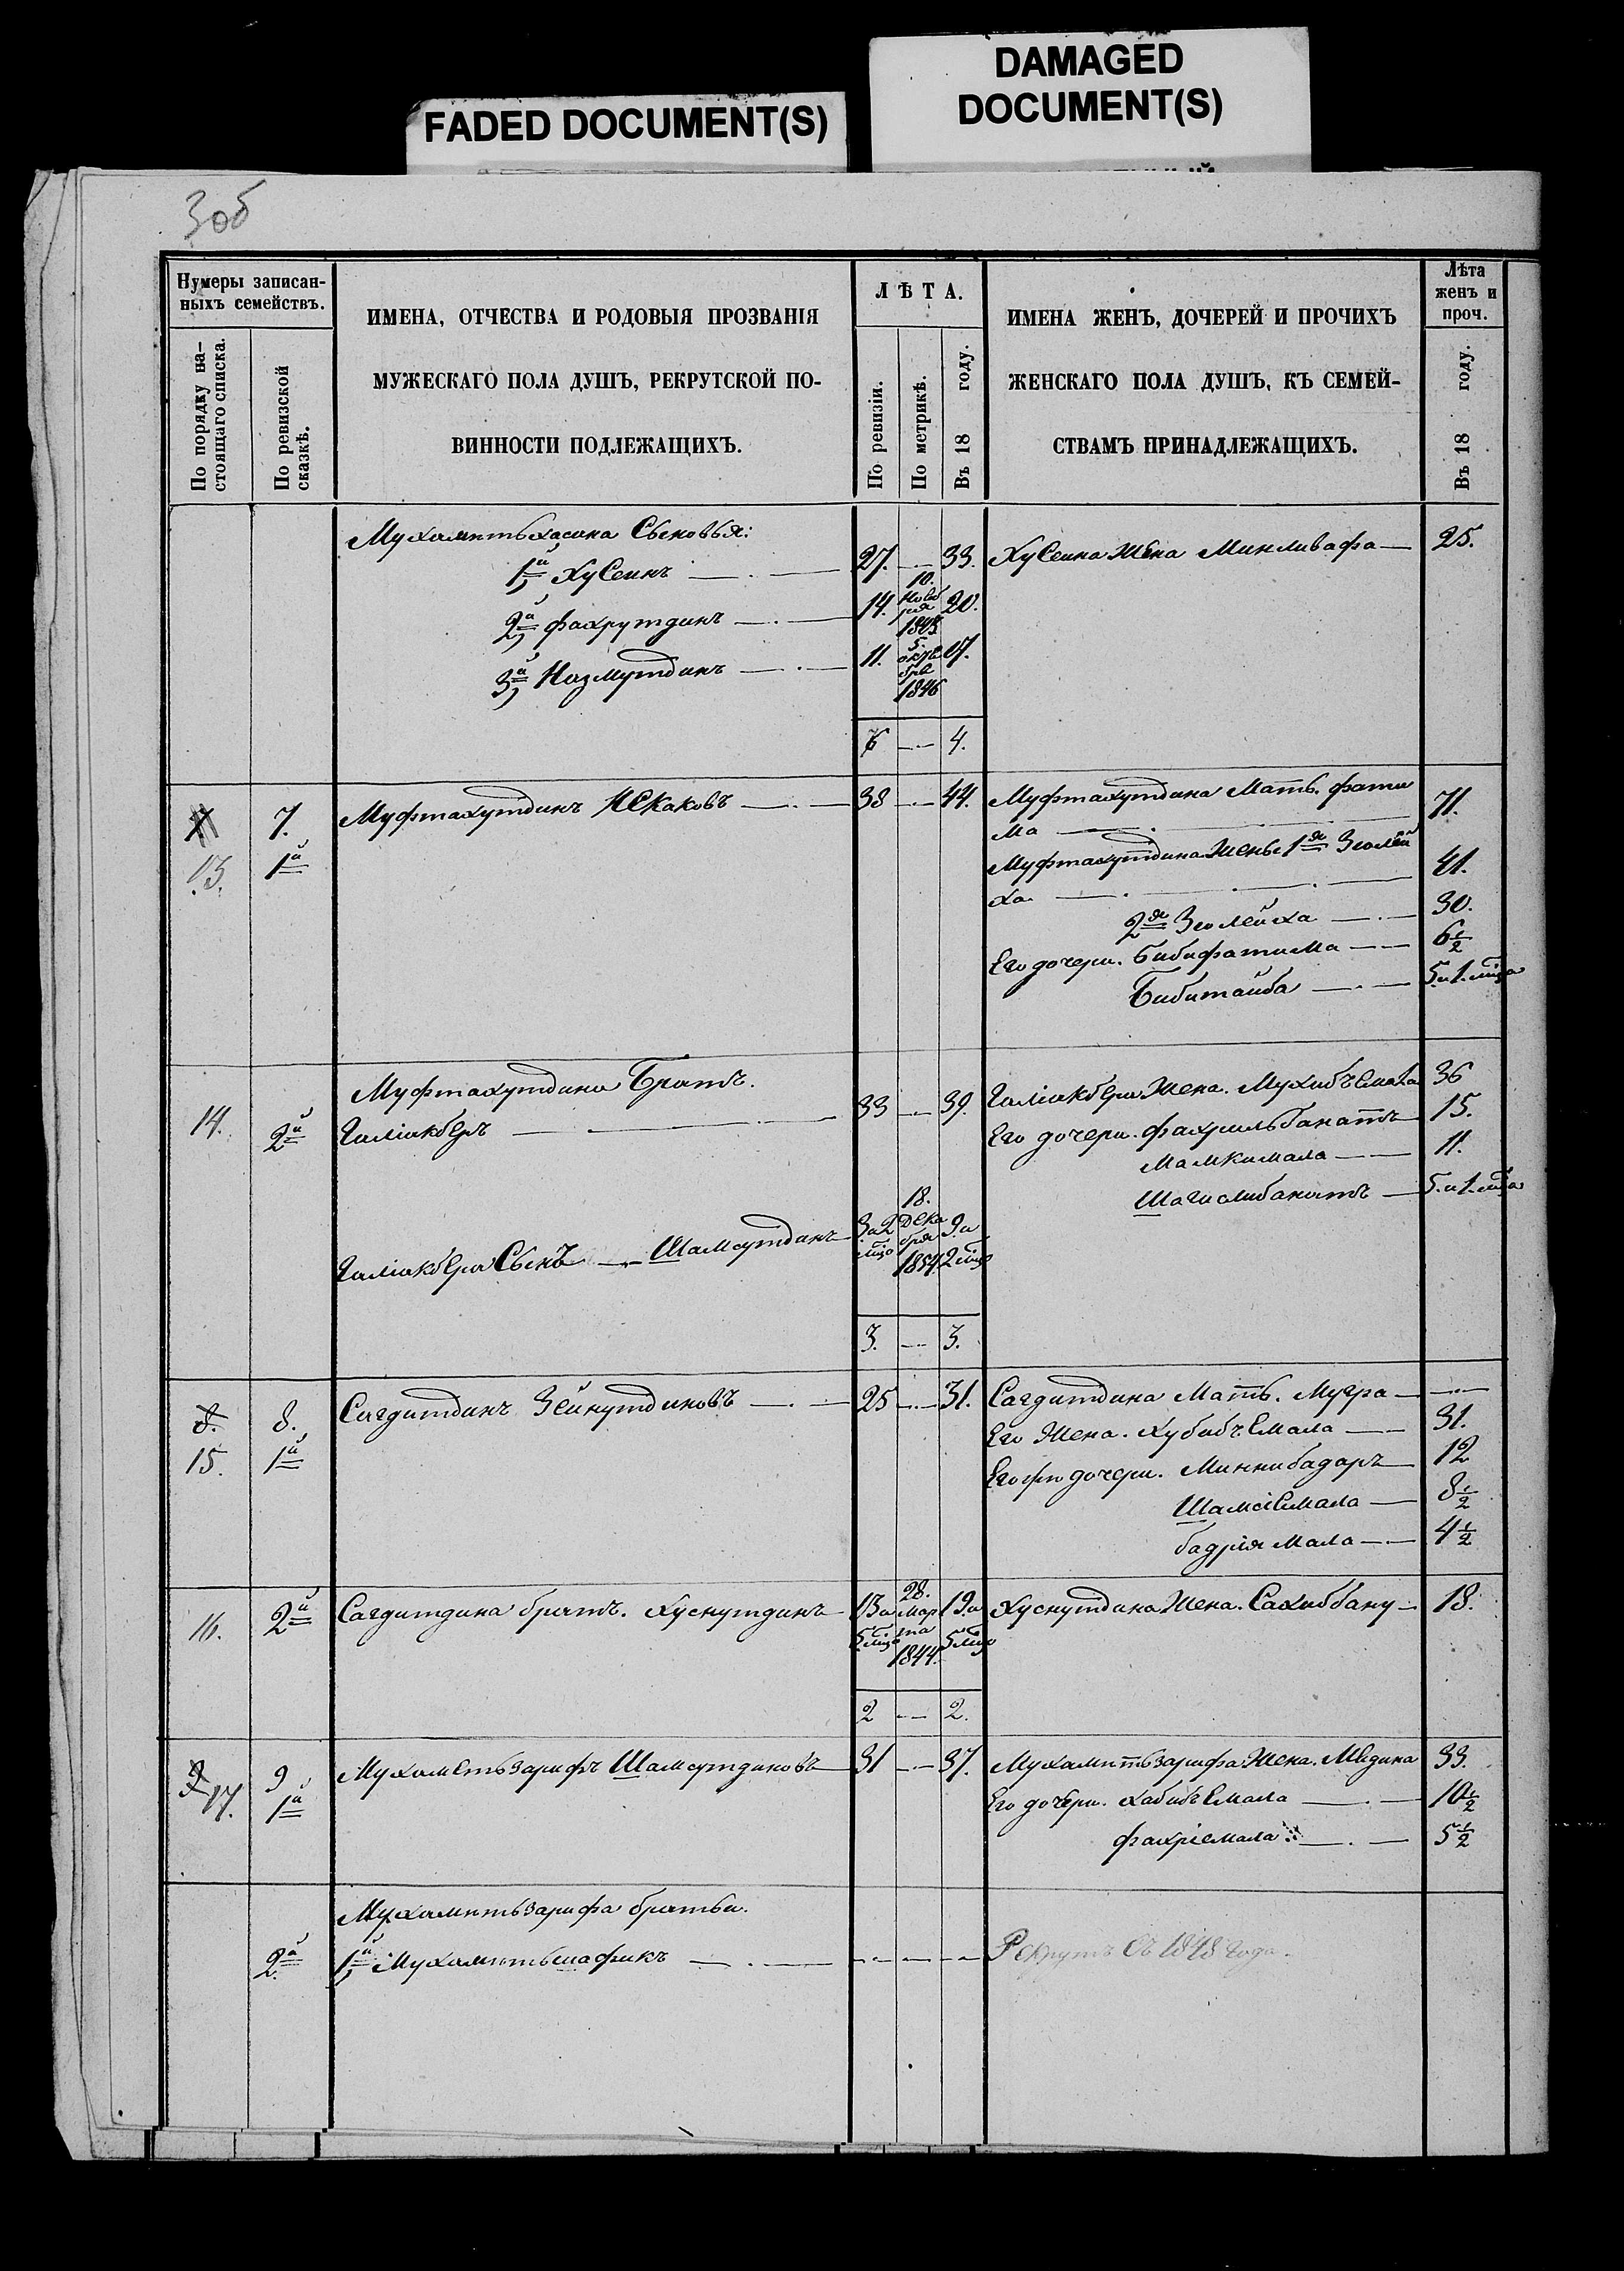 FADED DOCUMENT(S)
DAMAGED
DOCUMENT(S)
3об
Нумеры записан-
ныхъ семействъ.
По порядку на-
стоящаго списка.
По ревизской
сказкѣ.
ИМЕНА, ОТЧЕСТВА И РОДОВЫЯ ПРОЗВАНІЯ
МУЖЕСКАГО ПОЛА ДУШЪ, РЕКРУТСКОЙ ПО-
ВИННОСТИ ПОДЛЕЖАЩИХЪ.
ЛѢТА.
По ревизіи.
По метрикѣ.
Въ 18 году.
ИМЕНА ЖЕНЪ, ДОЧЕРЕЙ И ПРОЧИХЪ
ЖЕНСКАГО ПОЛА ДУШЪ, КЪ СЕМЕЙ-
СТВАМЪ ПРИНАДЛЕЖАЩИХЪ.
Лѣта
женъ и
проч.
Въ 18 году.
Мухаметьхасана Сыновья:
1й Хусеинъ 27. 33. Хусеина Жена Минливафа 25.
2й Фахрутдинъ 14. 10. Ноября 1843 20.
3й Назмутдинъ 11. 5. октября 1846 17.
4.
7. Муфтахутдинъ Искаковъ 38 44. Муфтахутдина Мать. Фати
ма 71.
13. 1й Муфтахутдина Жены 1я Зюлей
ха 41.
2я Зюлейха 30.
Его дочери. Бибифатима 6½
Бибитайба 5 и 1 мѣся
Муфтахутдина Братъ.
14. 2й Галіакберъ 33 39. Галіакбера Жена. Мухибъемала 36
Его дочери. Фахрильбанатъ 15.
Мамкимала 11.
Шагислибанатъ 5. и 1. мѣся
Галіакбера Сынъ Шамсутдинъ 3 и 2 мѣс 18. Декабря 1854. 9. и 2 мѣс
3. 3.
8. 8. Сагдитдинъ Зейнутдиновъ 25 31. Сагдитдина Мать. Мугра
15. 1й Его Жена. Хубибъемала 31.
Его дочери. Миннибадаръ 12
Шамсіемала 8½
Бадріямала 4½
16. 2й Сагдитдина братъ. Хуснутдинъ 13 и 5 мѣс 28. Марта 1844. 19. и 5 мѣс Хуснутдина Жена. Сахиббану 18.
2 2.
9 17. 9 1й Мухаметьзарифъ Шамсутдиновъ 31 37. Мухаметьзарифа Жена. Медина 33.
Его дочери. Хабибъемала 10½
Фахріемала 5½
Мухаметьзарифа братья.
2й 1й Мухаметьшафикъ Рекрутъ съ 1848 года.